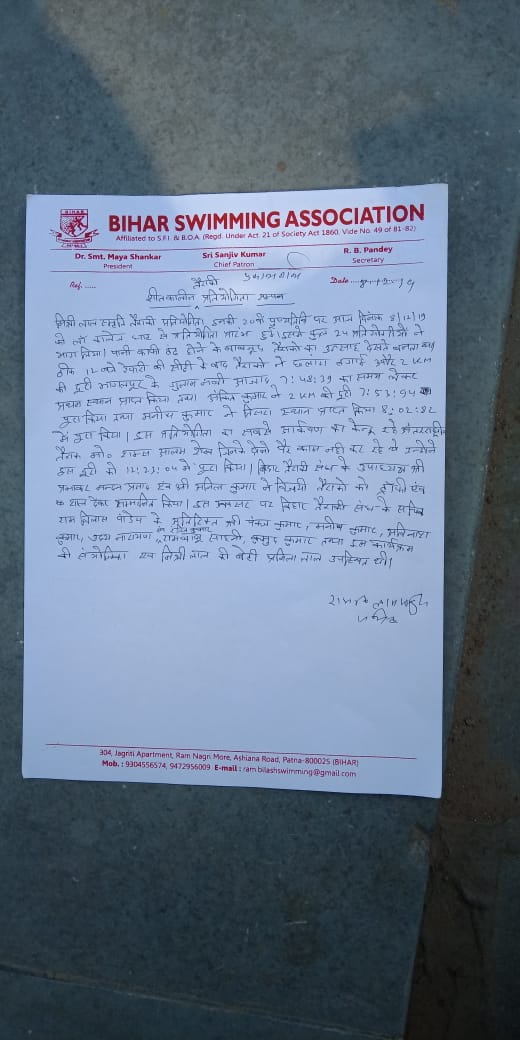 BIHAR SWIMMING ASSOCIATION
Affiliated to S.F.I. & B.O.A. (Regd. Under Act. 21 of Society Act 1860. Vide No. 49 of 81-82)
Dr. Smt. Maya Shankar
President
Sri Sanjiv Kumar
Chief Patron
R. B. Pandey
Secretary
Ref. ..... Date
तैराकी
शीतकालीन प्रतियोगिता सम्पन्न
मिश्री लाल स्मृति तैराकी प्रतियोगिता, उनकी 20वीं पुण्यतिथि पर आज दिनांक 8/12/19
को लॉ कॉलेज घाट से प्रतियोगिता प्रारंभ हुई। इसमें कुल 24 प्रतियोगीओं ने
भाग लिया। पानी काफी ठंड होने के बावजूद तैराकों का उत्साह देखते बनता था
ठीक 12 बजे रेफरी की सीटी के बाद तैराकों ने छलांग लगाई और 2 KM
की दूरी भागलपुर के 7:48:39 का समय लेकर
प्रथम स्थान प्राप्त किया तथा कुमार ने 2 KM की दूरी 7:53:94
पूरा किया तथा मनीष कुमार ने तीसरा स्थान प्राप्त किया 8:02:82
में पूरा किया। इस प्रतियोगिता का सबसे आकर्षण का केन्द्र रहे अंतरराष्ट्रीय
तैराक मो० शम्स आलम शेख जिनके दोनों पैर काम नहीं कर रहे थे उन्होंने
इस दूरी को 12:23:04 में पूरा किया। बिहार तैराकी संघ के उपाध्यक्ष श्री
प्रभाकर नन्दन प्रसाद एवं श्री कुमार ने विजयी तैराकों को ट्रॉफी एवं
शाल देकर सम्मानित किया। इस अवसर पर बिहार तैराकी संघ के सचिव
राम विलास पांडेय के अतिरिक्त श्री पंकज कुमार, मनीष कुमार, अविनाश
कुमार, उदय नारायण, रामबाबू कुमार तथा इस कार्यक्रम
की संयोजिका एवं मिश्री लाल की बेटी लाल उपस्थित थी।
सचिव
304, Jagriti Apartment, Ram Nagri More, Ashiana Road, Patna-800025 (BIHAR)
Mob. : 9304556574, 9472956009 E-mail : ram.bilashswimming@gmail.com